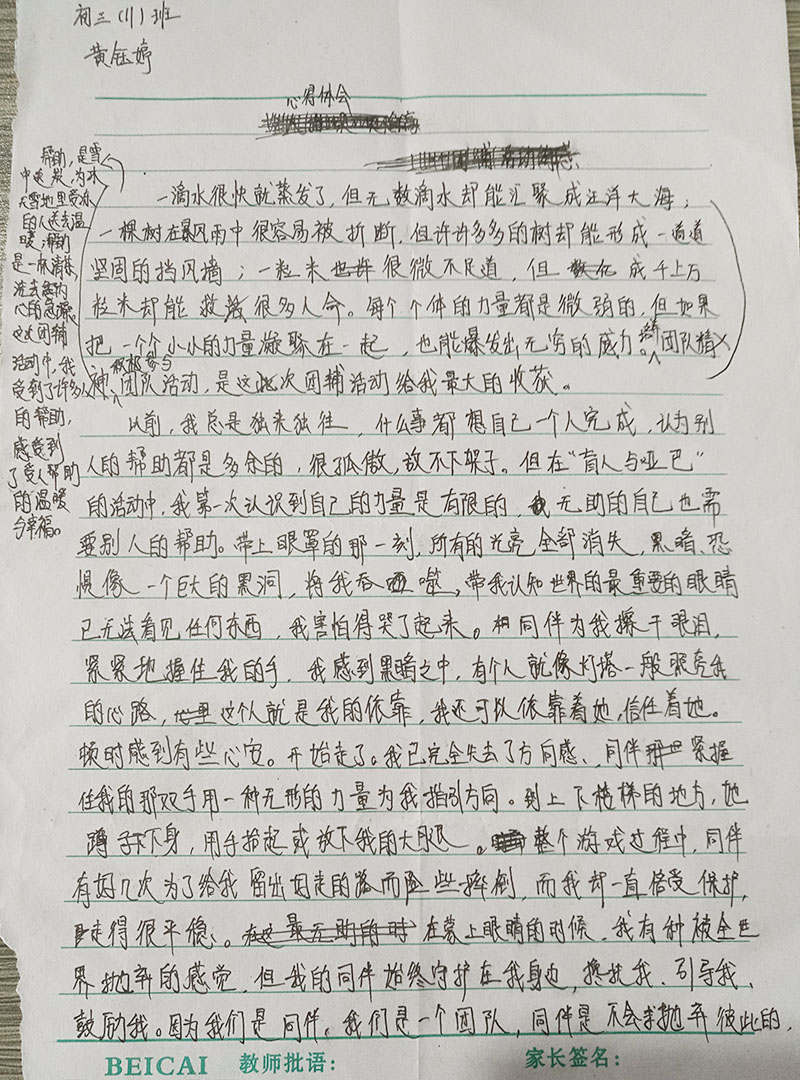 初三(11)班
黄钰婷
心得体会
帮助,是雪
中送炭,为冰
天雪地里受冻
的人送去温
暖;帮助
是一杯清茶,
洗去
心的急躁。
这次团辅
活动中,我
受到了许多人
的帮助,
感受到
了受人帮助
的温暖
与幸福。
一滴水很快就蒸发了,但无数滴水却能汇聚成汪洋大海;
一棵树在暴风雨中很容易被折断,但许许多多的树却能形成一道道
坚固的挡风墙;一粒米很微不足道,但成千上万
粒米却能救很多人命。每个个体的力量都是微弱的,但如果
把一个个小小的力量凝聚在一起,也能爆发出无穷的威力。团队精
神,积极参与团队活动,是这次团辅活动给我最大的收获。
以前,我总是独来独往,什么事都想自己一个人完成,认为别
人的帮助都是多余的,很孤傲,放不下架子。但在“盲人与哑巴”
的活动中,我第一次认识到自己的力量是有限的,无助的自己也需
要别人的帮助。带上眼罩的那一刻,所有的光亮全部消失,黑暗、恐
惧像一个巨大的黑洞,将我吞噬,带我认知世界的最重要的眼睛
已无法看见任何东西,我害怕得哭了起来。同伴为我擦干眼泪,
紧紧地握住我的手,我感到黑暗之中,有个人就像灯塔一般照亮我
的心路,这个人就是我的依靠,我还可以依靠着她,信任着她。
顿时感到有些心安。开始走了。我已完全失去了方向感、同伴紧握
住我的那双手用一种无形的力量为我指引方向。到上下楼梯的地方,她
蹲下身,用手抬起或放下我的大腿。整个游戏过程中,同伴
有好几次为了给我留出好走的路而险些摔倒,而我却一直倍受保护,
走得很平稳。在蒙上眼睛的时候,我有种被全世
界抛弃的感觉,但我的同伴始终守护在我身边,搀扶我、引导我、
鼓励我。因为我们是同伴,我们是一个团队,同伴是不会抛弃彼此的,
BEICAI 教师批语: 家长签名: